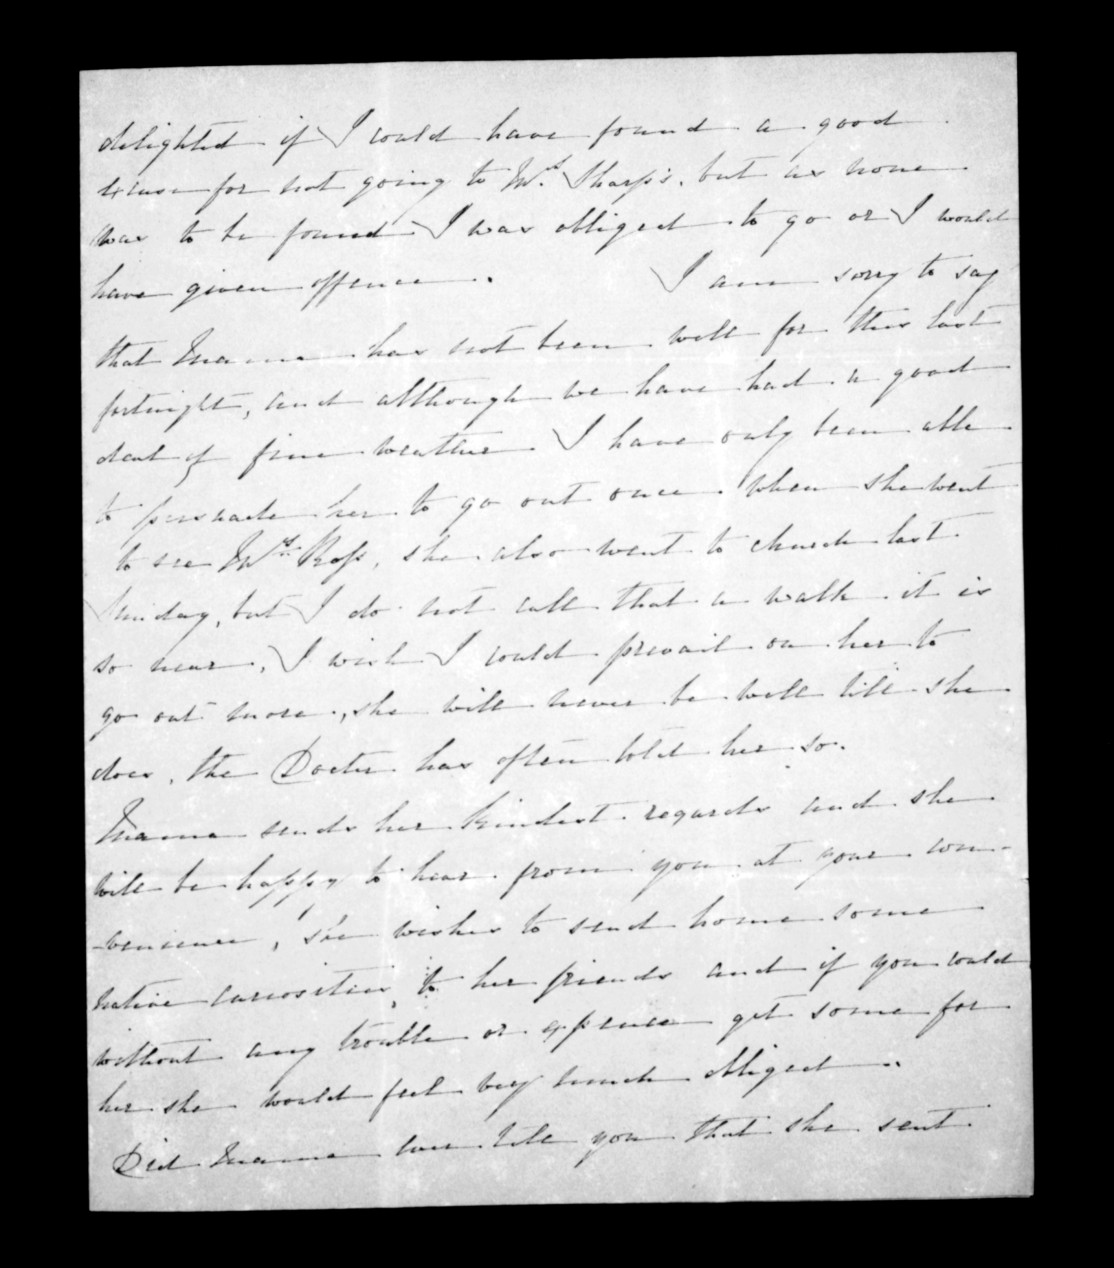 delighted if I could have found a good
excuse for not going to Mrs. Sharp's, but as none
was to be found I was obliged to go or I would
have given offence. I am sorry to say
that Mama has not been well for this last
fortnight, and although we have had a good
deal of fine weather I have only been able
to persuade her to go out once when she went
to see Mrs. Ross, she also went to church last
Sunday, but I do not call that a walk it is
so near, I wish I could prevail on her to
go out more, she will never be well till she
does, the Doctor has often told her so.
Mama sends her kindest regards and she
will be happy to hear from you at your con-
-venience, she wishes to send home some
native curiosities, to her friends and if you could
without any trouble or expence get some for
her she would feel very much obliged.
Did Mama ever tell you that she sent